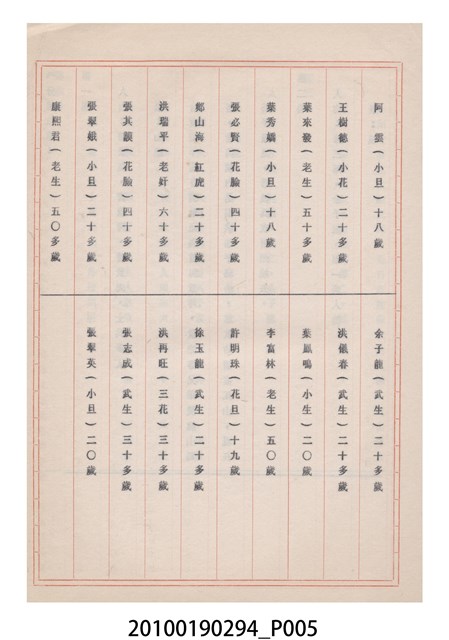 阿雲(小旦)十八歲
王樹德(小花)二十多歲
葉來發(老生)五十多歲
葉秀嬌(小旦)十八歲
張必賢(花臉)四十多歲
鄭山海(紅虎)二十多歲
洪瑞平(老奸)六十多歲
張其謨(花臉)四十多歲
張翠娥(小旦)二十多歲
康熙君(老生)五〇多歲
余子龍(武生)二十多歲
洪銀春(武生)二十多歲
葉鳳鳴(小生)二〇歲
李富林(老生)五〇歲
許明珠(花旦)十九歲
徐玉龍(武生)二十多歲
洪再旺(三花)三十多歲
張志成(武生)三十多歲
張翠英(小旦)二〇歲
20100190294_P005